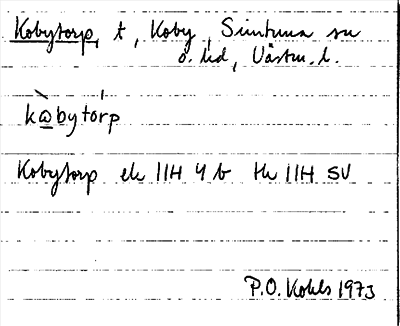 Kobytorp, t, Koby, Simtuna sn
ö. hd, Västm. l.
k@bytorp
Kobytorp ek 11H 4 b tk 11H SV
P.O. Kohls 1973